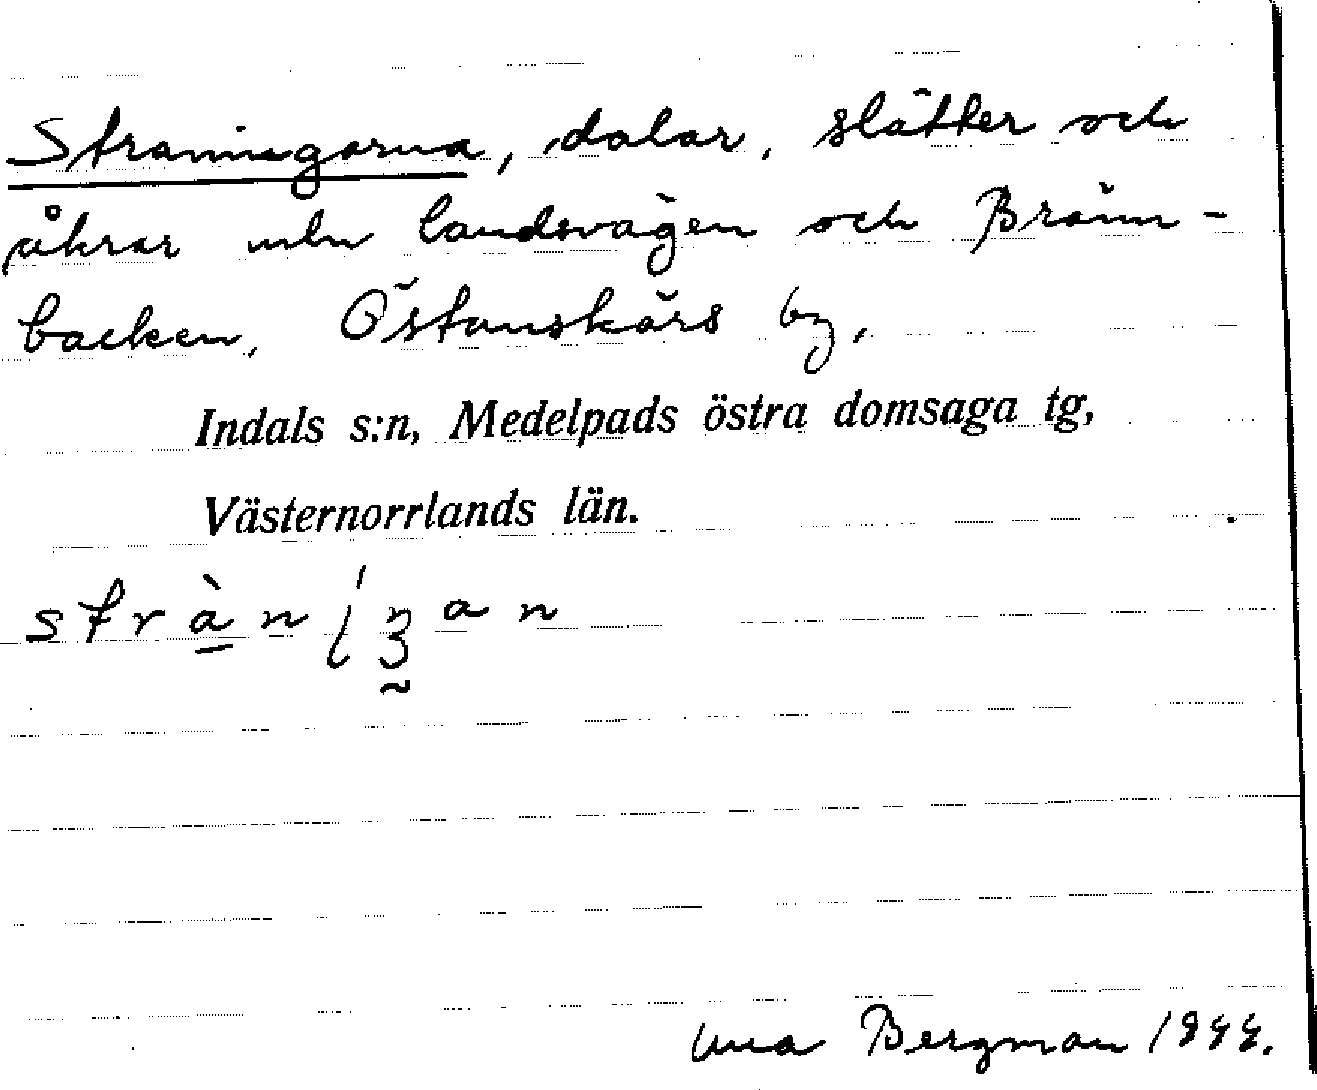 Straningarna, dalar, slätter och
åkrar mln landsvägen och Bränn-
backen, Östanskärs by,
Indals s:n, Medelpads östra domsaga tg,
Västernorrlands län.
Bergman 1944.